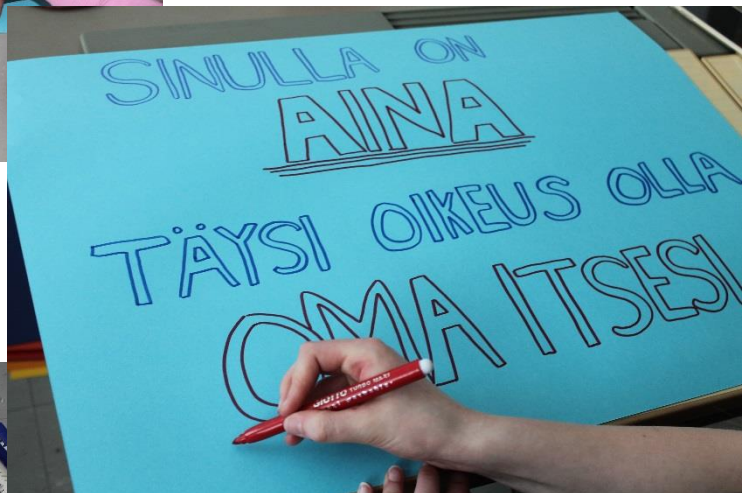 SINULLA ON
AINA
TÄYSI OIKEUS OLLA
OMA ITSESI
GIOTTO TURBO MAXI